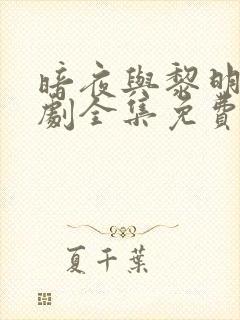 暗夜與黎明
劇全集免費
夏千葉